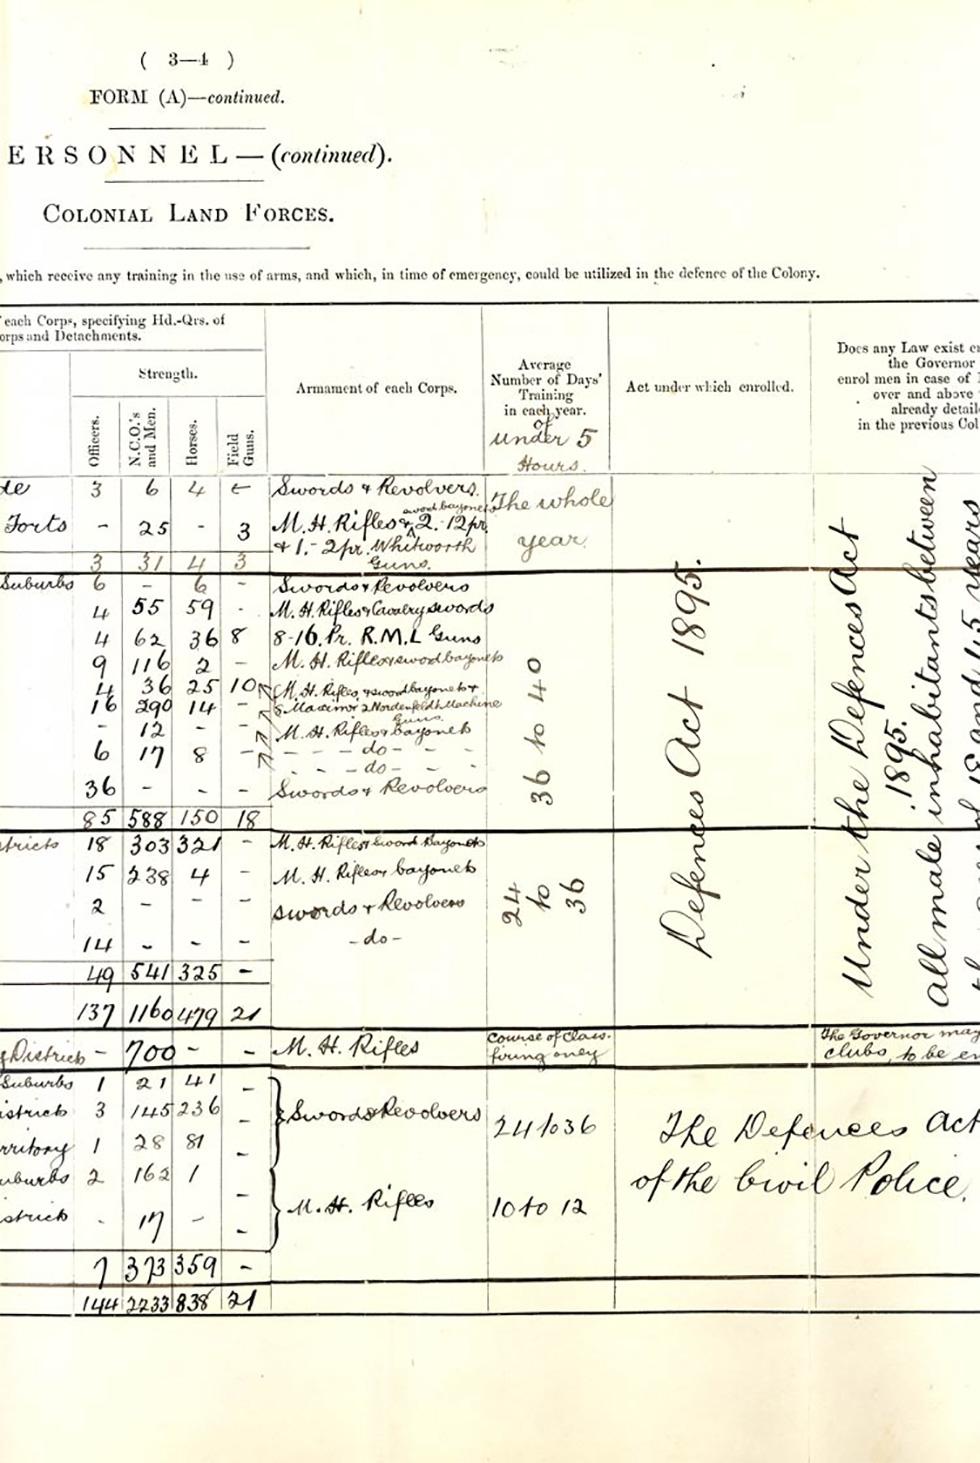 ( 3—4 )
FORM (A)—continued.
ERSONNEL—(continued).
COLONIAL LAND FORCES.
, which receive any training in the use of arms, and which, in time of emergency, could be utilized in the defence of the Colony.
each Corps, specifying Hd.-Qrs. of
orps and Detachments.
Strength.
Officers.
N.C.O.'s and Men.
Horses.
Field Guns.
Armament of each Corps.
Average
Number of Days'
Training
in each year.
of
under 5
Hours.
Act under which enrolled.
Does any Law exist e
the Governor
enrol men in case of
over and above
already detail
in the previous Col
de 3 6 4 Swords & Revolvers. The whole
Forts - 25 - 3 M. H. Rifles & sword bayonets 2.-12pr year
& 1.-2pr. Whitworth
3 31 4 3 Guns.
Suburbs 6 - 6 - Swords & Revolvers
4 55 59 - M. H. Rifles & Cavalry swords
4 62 36 8 8-16. Pr. R.M.L Guns
9 116 2 - M. H. Rifles & sword bayonets
4 36 25 10 M. H. Rifles & sword bayonets &
16 290 14 - Maxim & 2 Nordenfeldt Machine
Guns.
- 12 - - M. H. Rifles & bayonets
6 17 8 - - do -
- do -
36 - - - Swords & Revolvers
85 588 150 18
36 to 40
tricts 18 303 321 - M. H. Rifles & Sword Bayonets
15 238 4 - M. H. Rifles & bayonets
2 - - - Swords & Revolvers
14 - - - - do -
49 541 325 -
24
to
36
137 1160 479 21
Defences Act 1895.
Under the Defences Act
1895.
all male inhabitants between
18 and 45 years
District - 700 - - M. H. Rifles Course of Class-
firing only
The Governor may
clubs, to be en
Suburbs 1 21 41 -
istrict 3 145 236 - Swords & Revolvers 24 to 36
rritory 1 28 81 -
uburbs 2 162 1 -
istrict - 17 - - M. H. Rifles 10 to 12
The Defences Act
of the Civil Police.
7 373 359 -
144 2233 838 21